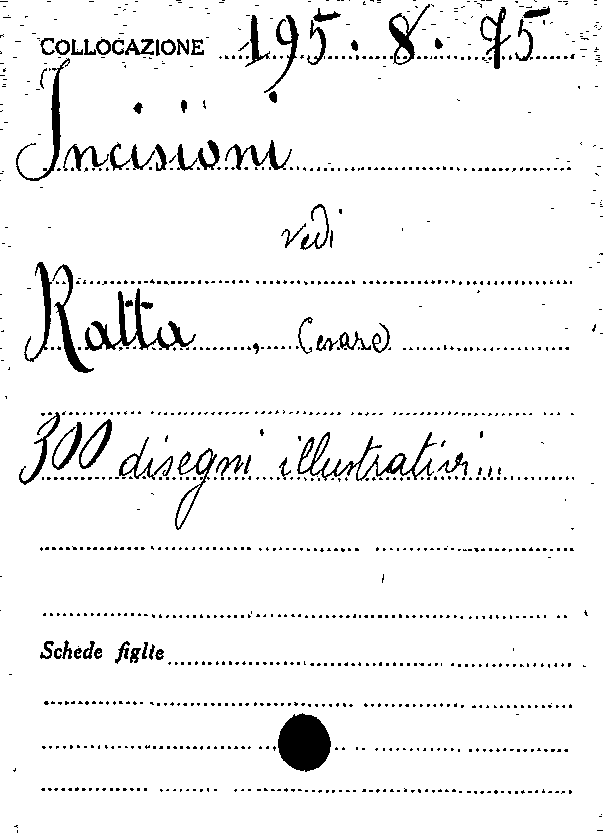 COLLOCAZIONE 195. 8. 75
Incisioni
vedi
Ratta, Cesare
300 disegni illustrativi...
Schede figlie